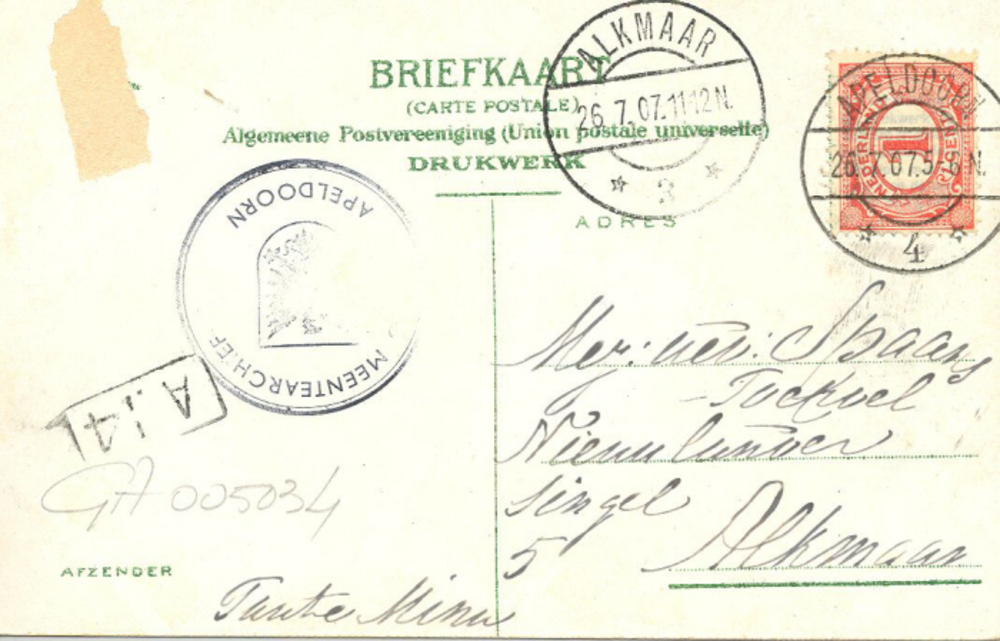 BRIEFKAART
(CARTE POSTALE)
Algemeene Postvereeniging (Union postale universelle)
DRUKWERK
ALKMAAR
26.7.07.11-12N.
3
APELDOORN
26.7.07.5-6N.
4
NEDERLAND
1
CENT
ADRES
MEENTEARCHIEF
APELDOORN
A.14
GA 005034
Spaans
Nieuwlander
singel
5 Alkmaar
AFZENDER
Tante Mina